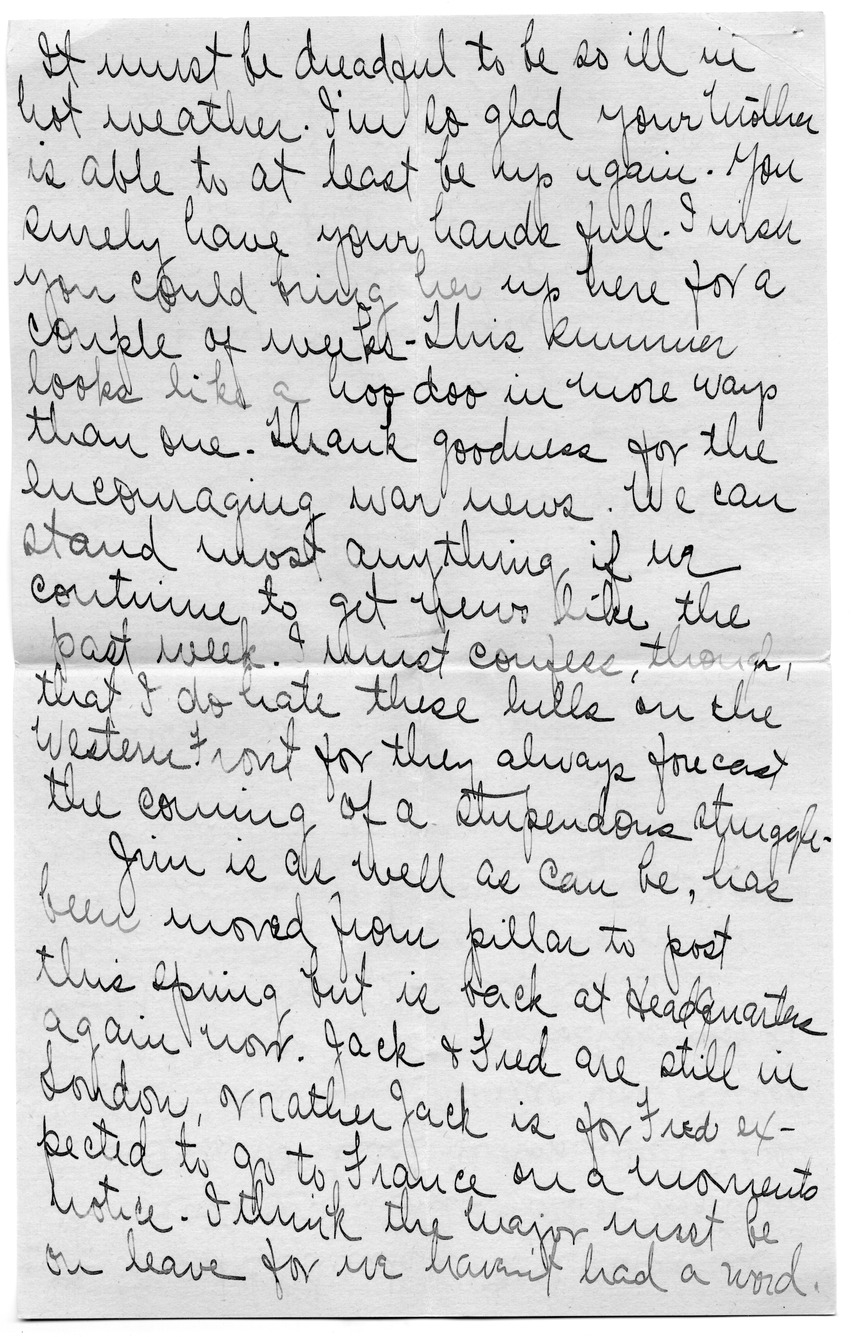 It must be dreadful to be so ill in
hot weather. I'm so glad your Mother
is able to at least be up again. You
surely have your hands full. I wish
you could bring her up here for a
couple of weeks - This summer
looks like a hoo doo in more ways
than one. Thank goodness for the
encouraging war news. We can
stand most anything if we
continue to get news like the
past week. I must confess, though,
that I do hate these lulls on the
Western Front for they always forecast
the coming of a stupendous struggle.
Jim is as well as can be, has
been moved from pillar to post
this spring but is back at Headquarters
again now. Jack & Fred are still in
London, or rather Jack is for Fred ex-
pected to go to France on a moments
notice. I think the Major must be
on leave for we haven't had a word.